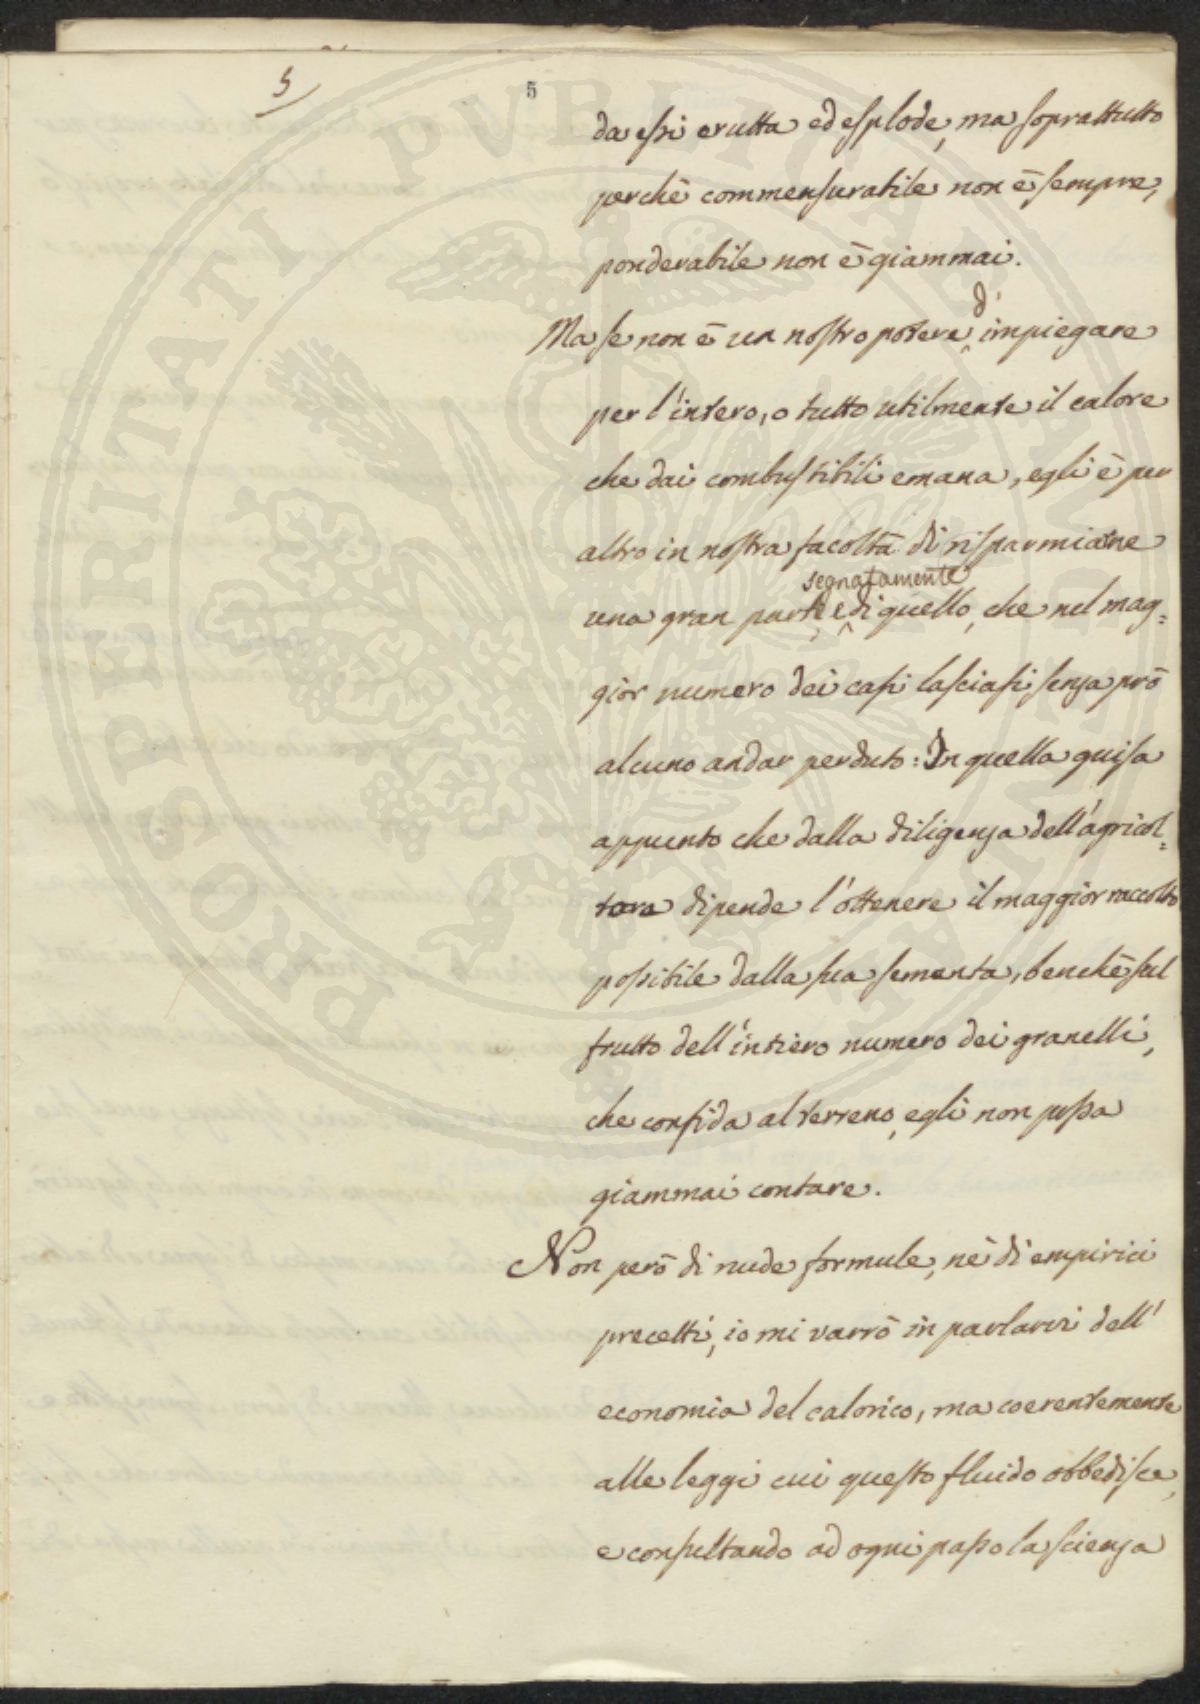 5
5
da essi erutta ed esplode, ma soprattutto
perchè commensurabile non è sempre,
ponderabile non è giammai.
d'
Ma se non è un nostro potere impiegare
per l'intero, o tutto utilmente il calore
che dai combustibili emana, egli è per
altro in nostra facoltà di risparmiarne
segnatamente
una gran parte, e di quello, che nel mag=
gior numero dei casi lasciasi senza prò
alcuno andar perduto: In quella guisa
appunto che dalla diligenza dell'agricol=
tore dipende l'ottenere il maggior raccolto
possibile dalla sua sementa, benchè sul
frutto dell'intiero numero dei granelli,
che confida al terreno, egli non possa
giammai contare.
Non però di nude formule, nè di empirici
precetti, io mi varrò in parlarvi dell'
economia del calorico, ma coerentemente
alle leggi cui questo fluido obbedisce,
e consultando ad ogni passo la scienza
PROSPERITATI PVBLICAE AVGENDAE